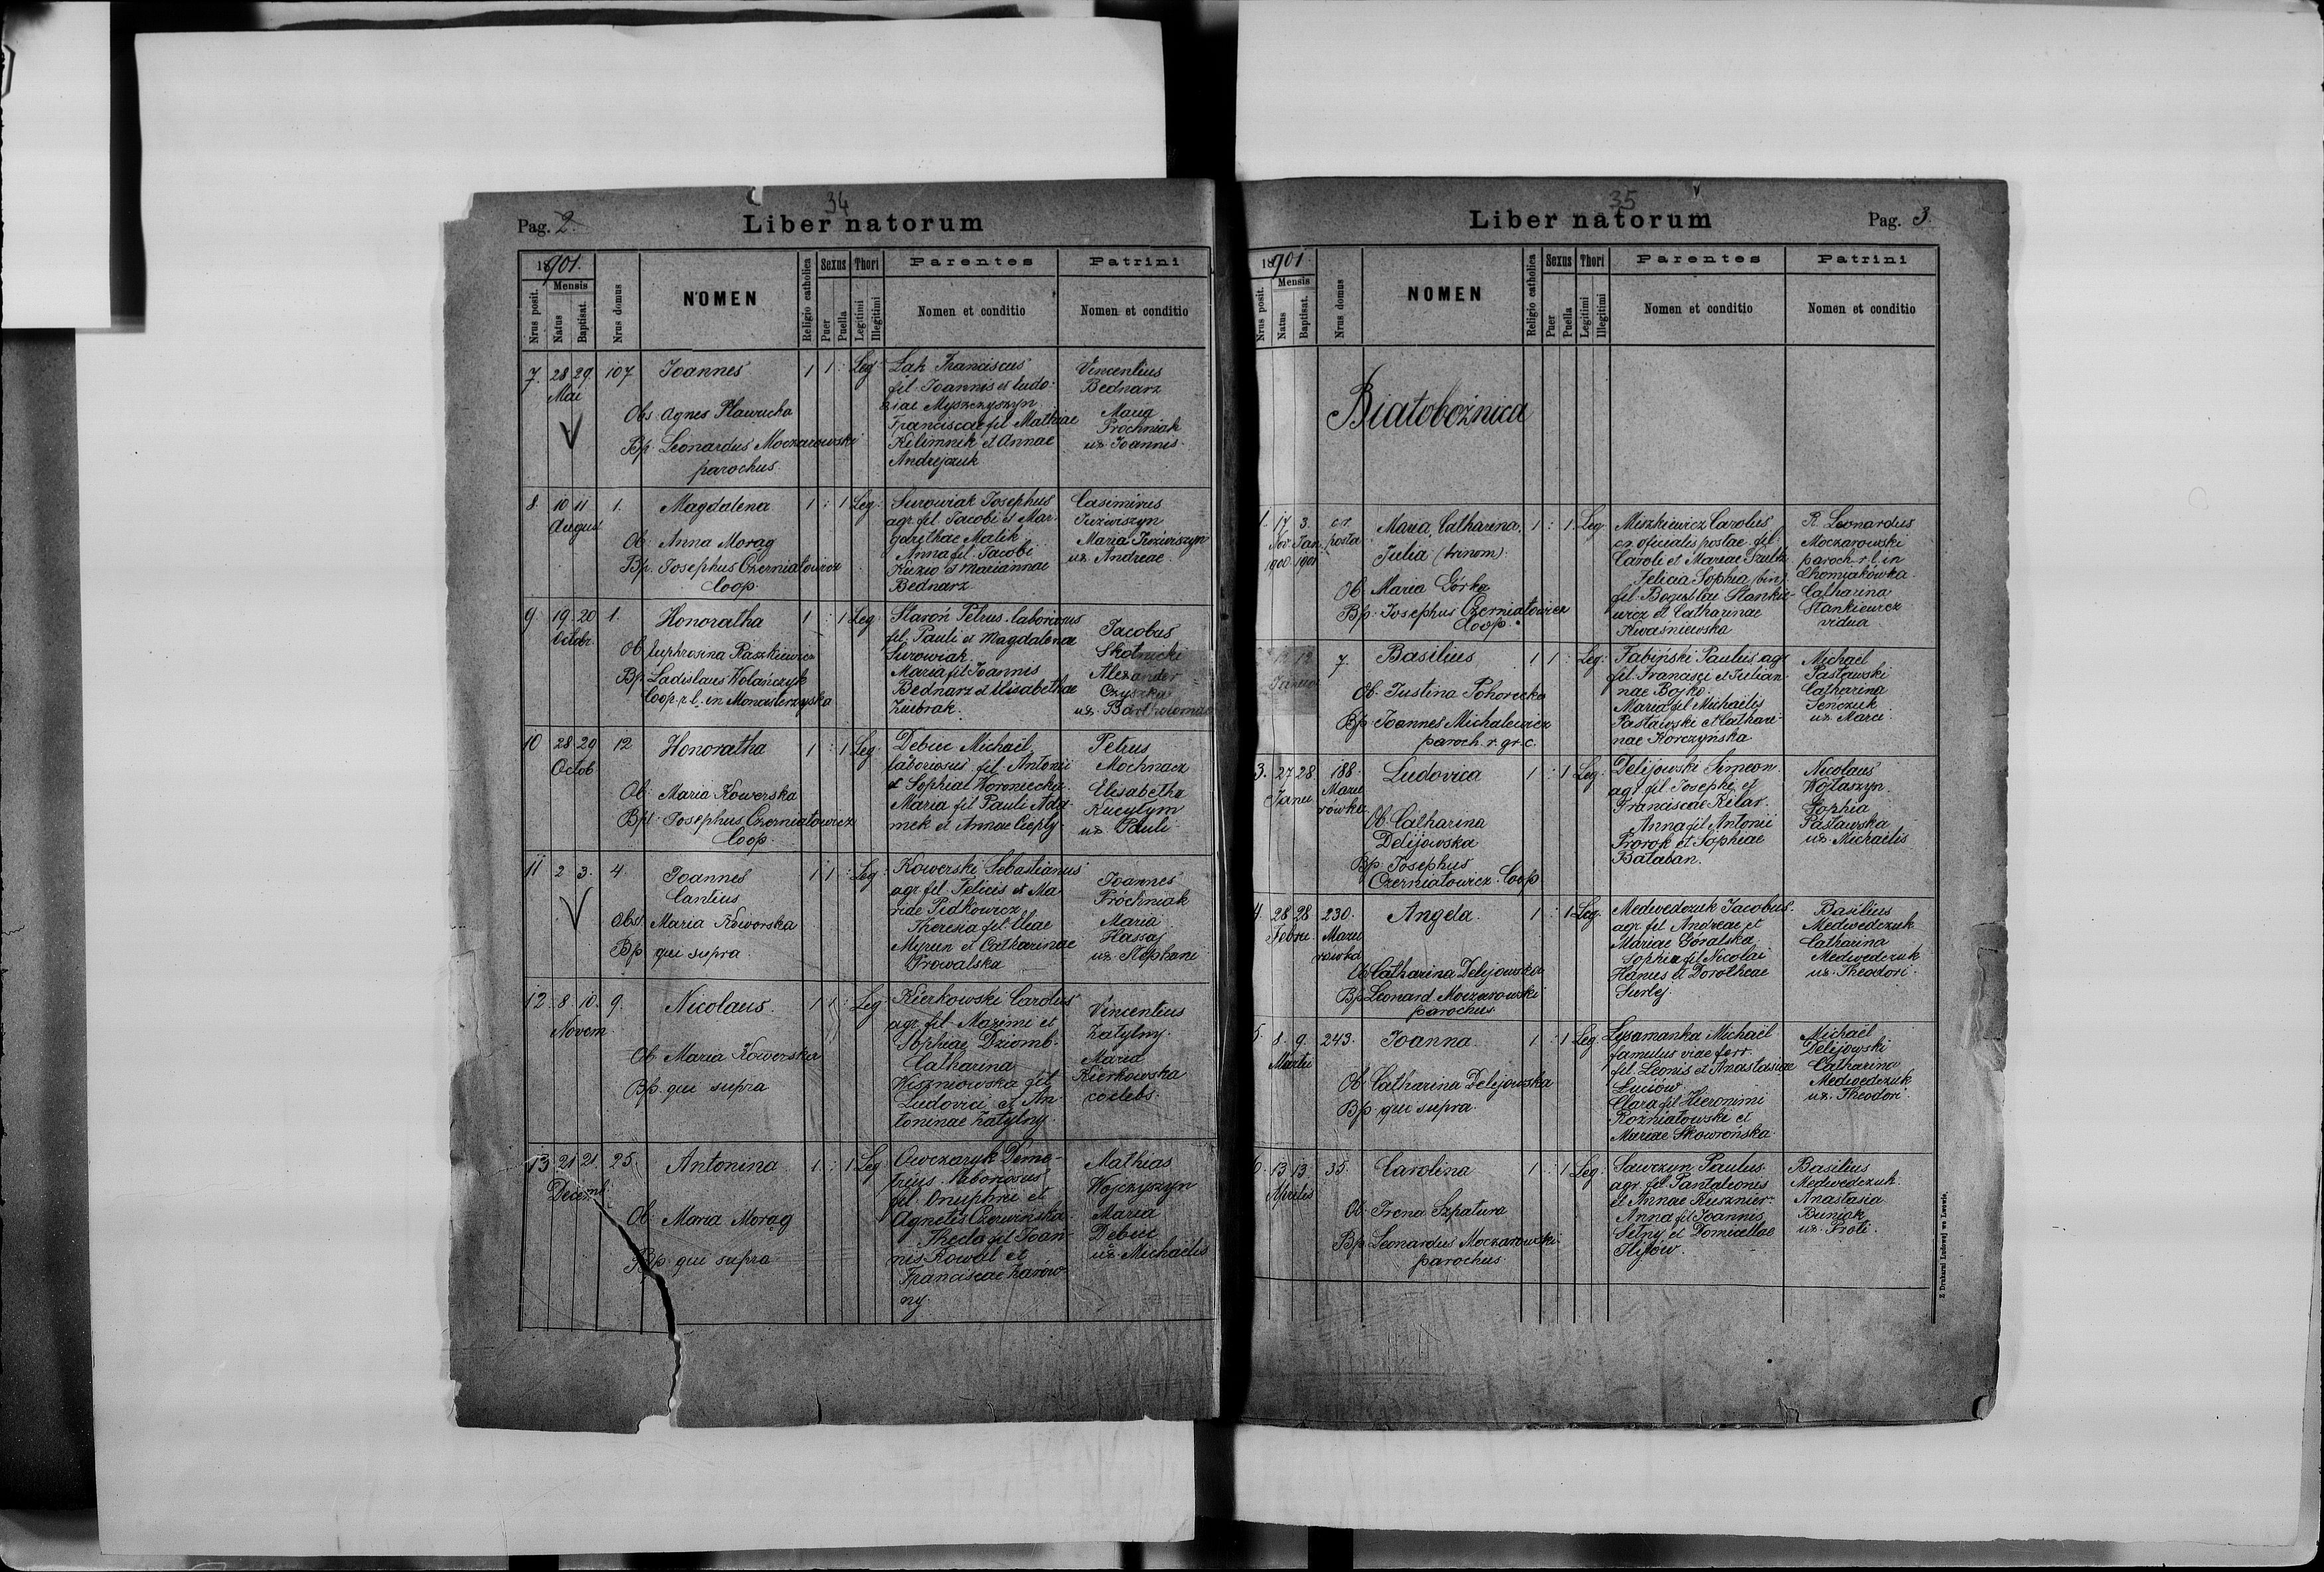 34
Pag. 2.
Liber natorum
1901.
Nrus posit.
Mensis
Natus
Baptisat.
Nrus domus
NOMEN
Religio catholica
Sexus
Puer
Puella
Thori
Legitimi
Illegitimi
Parentes
Nomen et conditio
Patrini
Nomen et conditio
7. 28 29 107 Joannes 1 1 : Leg.
Mai
Obs. Agnes Hawrucha
Bp. Leonardus Moczarowski
parochus.
Lak Franciscus
fil. Joannis et Ludo-
Myszczyszyn
Franciscae fil Mathiae
Kilimnik et Annae
Andrejczuk
Vincentius
Bednarz
Maria
Prochniak
ux. Joannis.
8. 10 11 1. Magdalena 1 : 1 Leg.
August
Ob. Anna Morag
Bp. Josephus Czerniatowicz
Coop.
Surowiak Josephus
agr. fil. Jacobi et Mar-
garethae Malik
Anna fil. Jacobi
Kuzio et Mariannae
Bednarz
Casimirus
Juzwiszyn
Maria Juzwiszyn
ux. Andreae
9. 19 20 1. Honoratha 1 : 1 Leg.
Octobr.
Ob. Euphrosna Raszkiewicz
Bp. Ladislaus Wolańczyk
Coop. r. l. in Monasterzyska
Staroń Petrus laboriosus
fil. Pauli et Magdalena
Surowiak
Maria fil Joannis
Bednarz et Elisabethae
Ziebrak.
Jacobus
Skotnicki
Alexander
Czyszka
ux. Bartholomaei
10 28 29 12 Honoratha 1 : 1 Leg.
Octob
Ob. Maria Kowerska
Bpt. Josephus Czerniatowicz
Coop.
Debiec Michael
laboriosus fil. Antonii
et Sophiae Woroniecka.
Maria fil Pauli Ada-
mek et Annae Ciepły
Petrus
Mochnacz
Elisabetha
Kucytym
ux. Pauli
11 2 3. 4. Joannes 1 1 : Leg.
Cantius
Obs. Maria Koworska
Bp. qui supra
Kowerski Sebastianus
agr. fil. Felicis et Ma-
riae Pidkowicz
Theresia fil Eliae
Myrun et Catharinae
Prowalska
Joannes
Próchniak
Maria
Hassaj
ux. Stephani
12. 8. 10. 9. Nicolaus. 1 1 : Leg.
Novem
Ob. Maria Kowerska
Bp. qui supra
Kierkowski Carolus
agr. fil. Maximi et
Sophiae Dziomb.
Catharina
Wiszniowska fil
Ludovici et An-
toninae Zatylny.
Vincentius
Zatylny.
Maria
Kierkowska
coelebs.
13 21 21. 25. Antonina 1 : 1 Leg.
Decemb.
Ob. Maria Morag
Bp. qui supra
Owczaryk Deme-
trius laboriosus
fil. Onuphrii et
Agnetis Czerwińska
Thecla fil Joan-
nis Kowal et
Franciscae Zarów-
ny.
Mathias
Wojczyszyn
Maria
Debiec
ux Michaelis
35
Liber natorum
Pag. 3.
1901
Nrus posit.
Mensis
Natus
Baptisat.
Nrus domus
NOMEN
Religio catholica
Sexus
Puer
Puella
Thori
Legitimi
Illegitimi
Parentes
Nomen et conditio
Patrini
Nomen et conditio
Białobożnica
1. 17 3. cr. Maria, Catharina, 1 : 1 Leg.
Nov. Jan. posta Julia (trinom).
1900. 1901
Ob. Maria Górka
Bp. Josephus Czerniatowicz
Coop.
Miszkiewicz Carolus
cr. oficialis postae fil.
Caroli et Mariae
Felicia Sophia (bin)
fil. Boguslai Stankie-
wicz et Catharinae
Kwaśniewska
R. Leonardus
Moczarowski
paroch r. l. in
Chomiakówka.
Catharina
Stankiewicz
vidua
12 12 7. Basilius 1 1 : Leg.
Januar
Ob. Justina Pohorecka
Bp. Joannes Michalewicz
paroch. r. gr. c.
Fabiński Paulus agr.
fil. Francisci et Julian-
nae Bojko.
Maria fil Michaelis
Pastawski et Cathari-
nae Korczyńska
Michael
Pastawski
Catharina
Jenczuk
ux. Marci.
3. 27 28 188. Ludovica 1 : 1 Leg.
Janu Mazu
rówka.
Ob. Catharina
Delijowska
Bp. Josephus
Czerniatowicz. Coop
Delijowski Simeon.
agr. fil. Josephi et
Franciscae Kitar.
Anna fil. Antonii
Prorok et Sophiae
Bałaban.
Nicolaus
Wojtaszyn.
Sophia
Pastawska
ux. Michaelis
4. 28 28 230. Angela. 1 : 1 Leg.
Febru. Mazu
rówka
Ob. Catharina Delijowska
Bp. Leonard. Moczarowski
parochus.
Medwedczuk Jacobus.
agr. fil. Andreae et
Mariae Góralska
Sophia fil Nicolai
Hanus et Dorotheae
Surlej.
Basilius
Medwedczuk
Catharina
Medwedczuk
ux. Theodori.
5. 8. 9. 243. Joanna 1 : 1 Leg.
Martii
Ob. Catharina Delijowska
Bp. qui supra.
Lysamanka Michael
famulus viae ferr.
fil. Leonis et Anastasiae
Łuciów
Clara fil Hieronimi
Rozniatowski et
Mariae Skowrońska
Michael
Delijowski
Catharina
Medwedczuk
ux. Theodori.
6. 13 13 35. Carolina 1 : 1 Leg.
Aprilis
Ob. Irena Szpatura
Bp. Leonardus Moczarowski
parochus
Sawczyn Paulus.
agr. fil. Pantaleonis
et Annae Kusznier.
Anna fil Joannis
Setny et Domicellae
Hyjów.
Basilius
Medwedczuk
Anastasia
Buniak
ux. Proti.
Z Drukarni Ludowej we Lwowie.